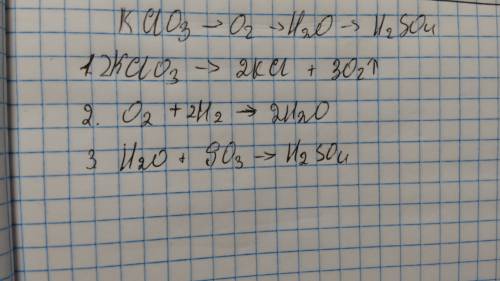 KClO3 → O2 → H2O → H2SO4
1. 2KClO3 → 2KCl + 3O2↑
2. O2 + 2H2 → 2H2O
3 H2O + SO3 → H2SO4